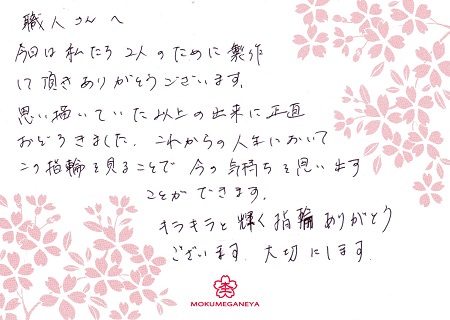 職人さんへ
今回は私たち2人のために製作
して頂きありがとうございます。
思い描いていた以上の出来に正直
おどろきました。これからの人生において
この指輪を見ることで今の気持ちを思い出す
ことができます。
キラキラと輝く指輪ありがとう
ございます。大切にします。
MOKUMEGANEYA